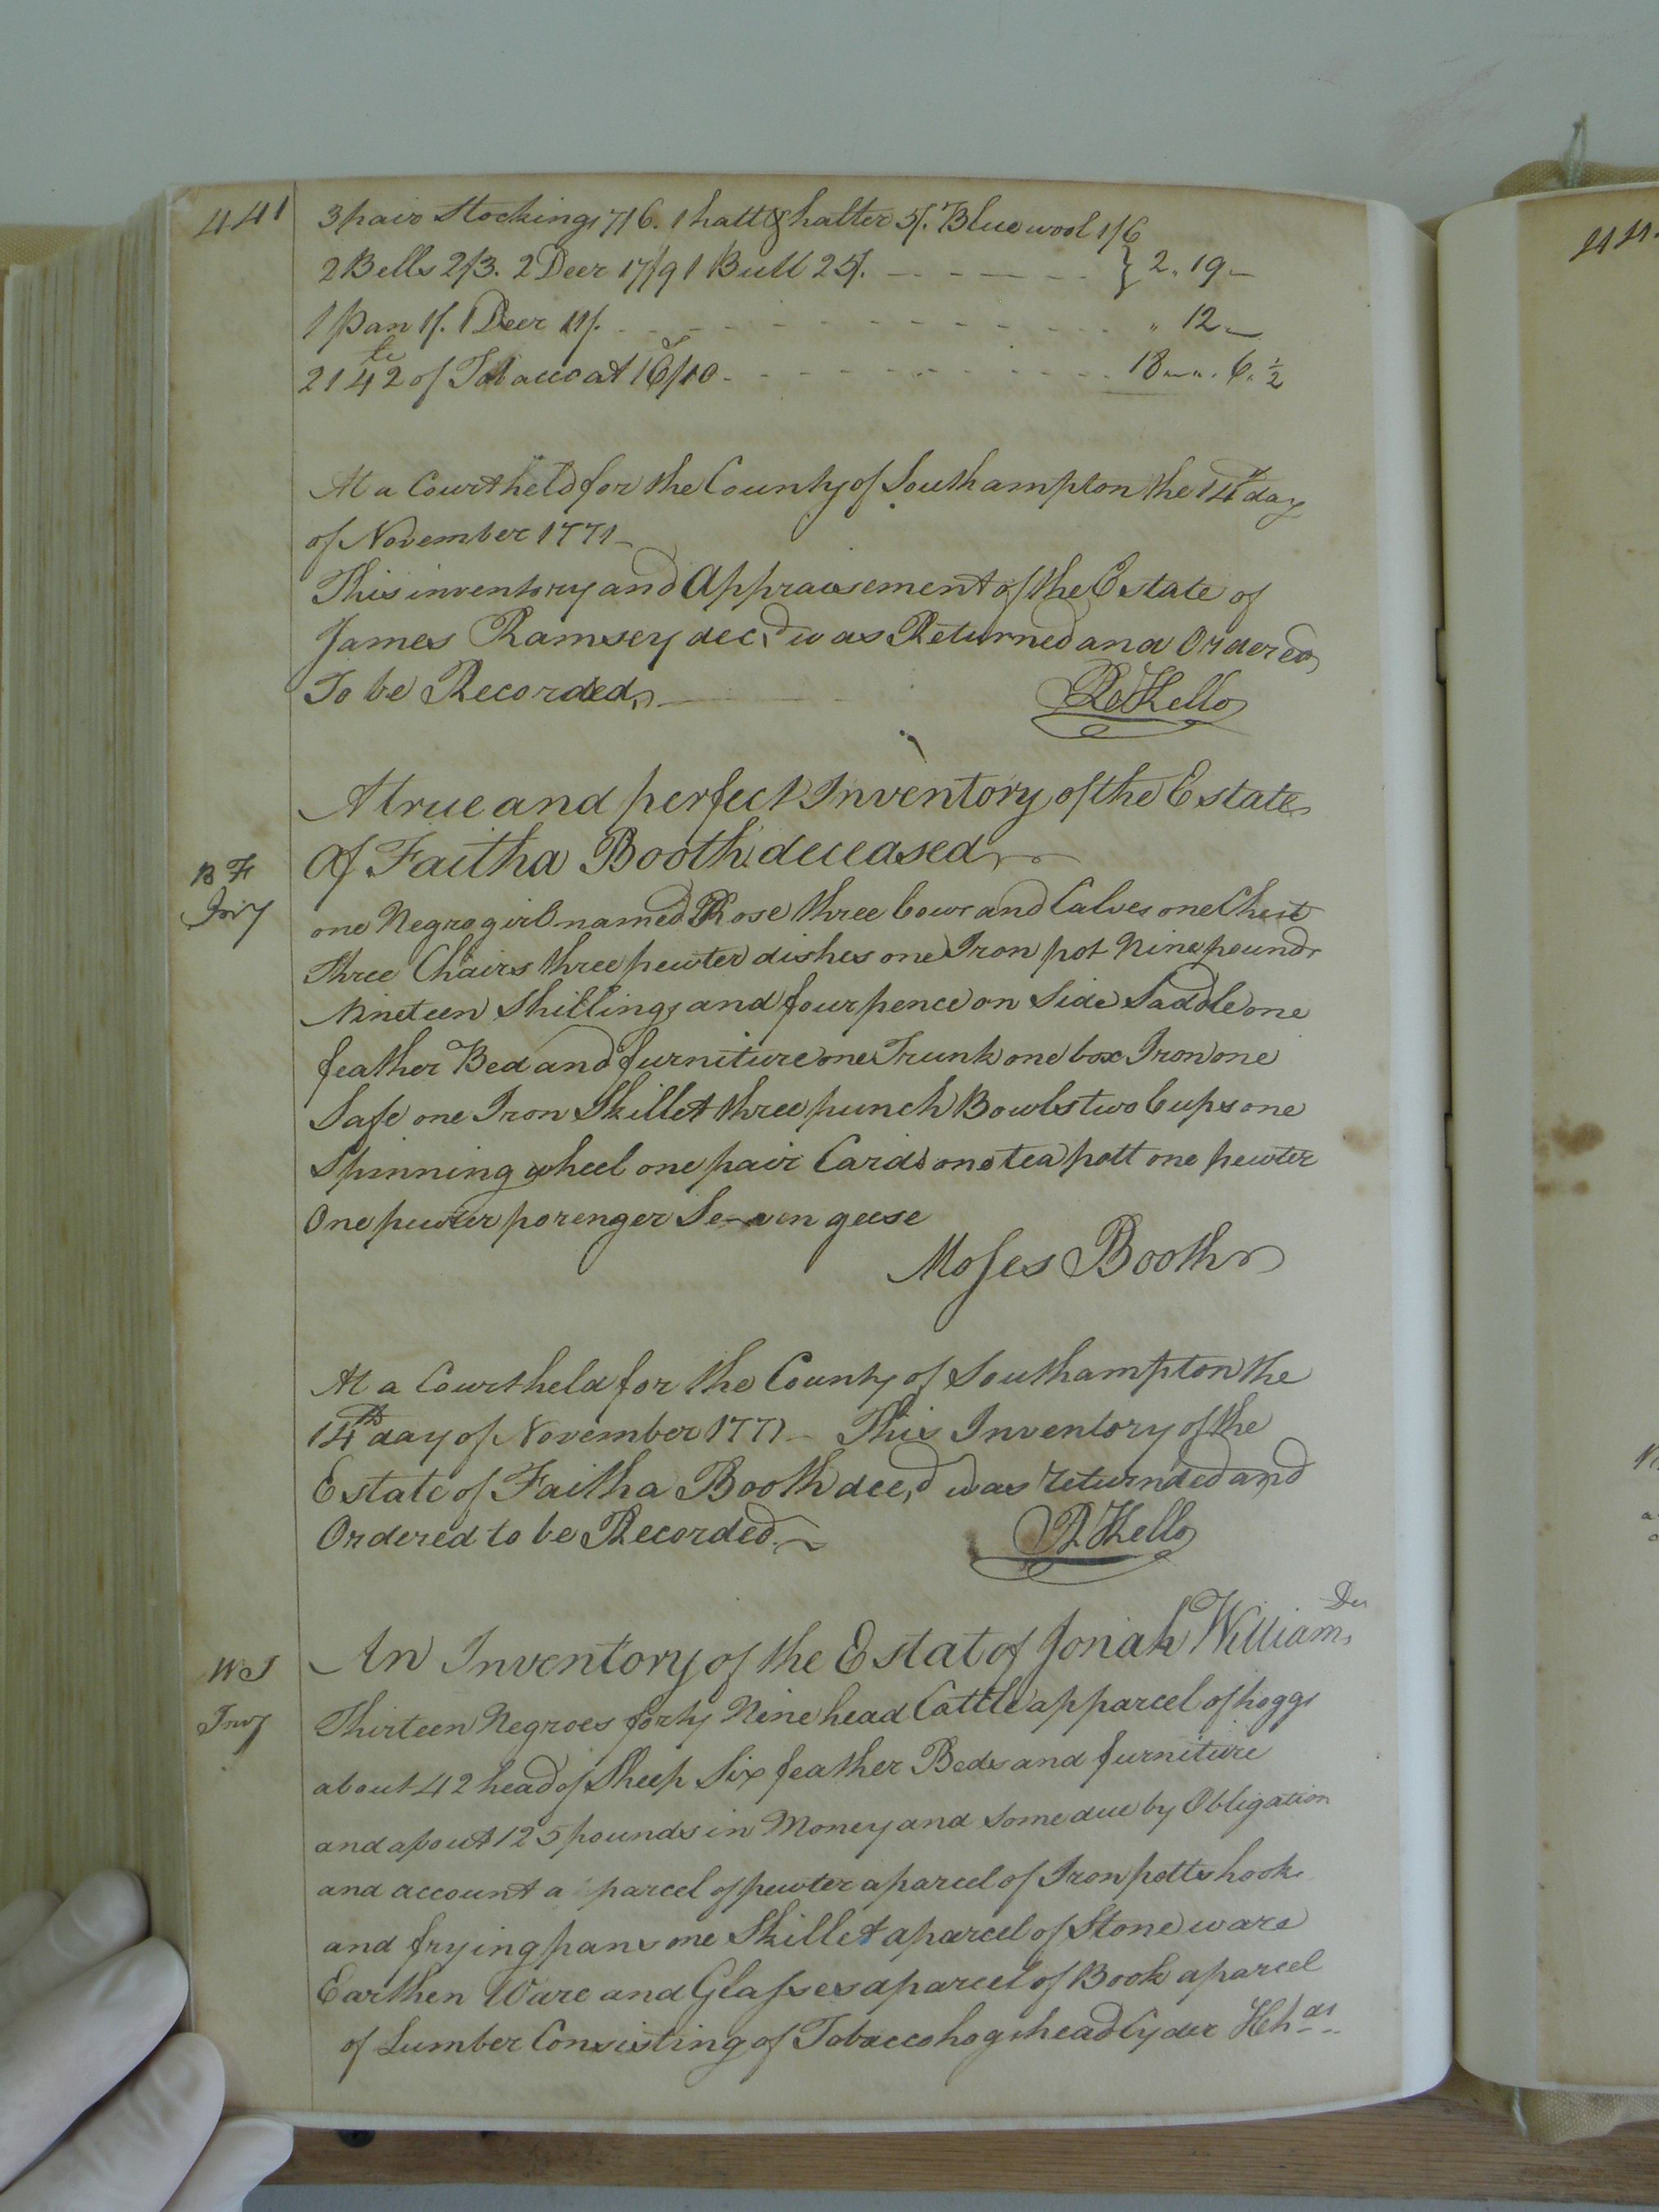 441
3 pair Stockings 7/6. 1 hatt & halter 5/. Blue wool 1/6
2 Bells 2/3. 2 Deer 17/9 1 Bull 25/. - - - - - - } 2. 19 -
1 pan 1/. 1 Deer 11/. - - - - - - - - - - " 12 -
2142 of Tobacco at 16/10 - - - - - - - - 18 - ". 6. ½
At a Court held for the County of Southampton the 14th day
of November 1771 -
This inventory and Appraisement of the Estate of
James Ramsey decd. was Returned and Ordered
To be Recorded,
R. Kello
A true and perfect Inventory of the Estate
Of Faitha Booth deceased
B F
Invy
one Negro girl named Rose three Cows and Calves one Chest
three Chairs three pewter dishes one Iron pot Nine pounds
Nineteen Shillings and four pence on Side Saddle one
feather Bed and furniture one Trunk one box Iron one
Safe one Iron Skillet three punch Bowls two Cups one
Spinning wheel one pair Cards one tea pott one pewter
One pewter porenger Se-ven geese
Moses Booth
At a Court held for the County of Southampton the
14th day of November 1771 - This Inventory of the
Estate of Faitha Booth decd, was returnded and
Ordered to be Recorded.
R Kello
An Inventory of the Estat of Jonah Williams
W J
Invy
Thirteen Negroes forty Nine head Cattle apparcel of hoggs
about 42 head of Sheep Six feather Beds and furniture
and about 125 pounds in Money and some due by Obligation
and account a parcel of pewter a parcel of Iron potts hooks
and frying pans one Skillet a parcel of Stone ware
Earthen Ware and Glasses a parcel of Book a parcel
of Lumber Consisting of Tobacco hogshead Cyder Hhds